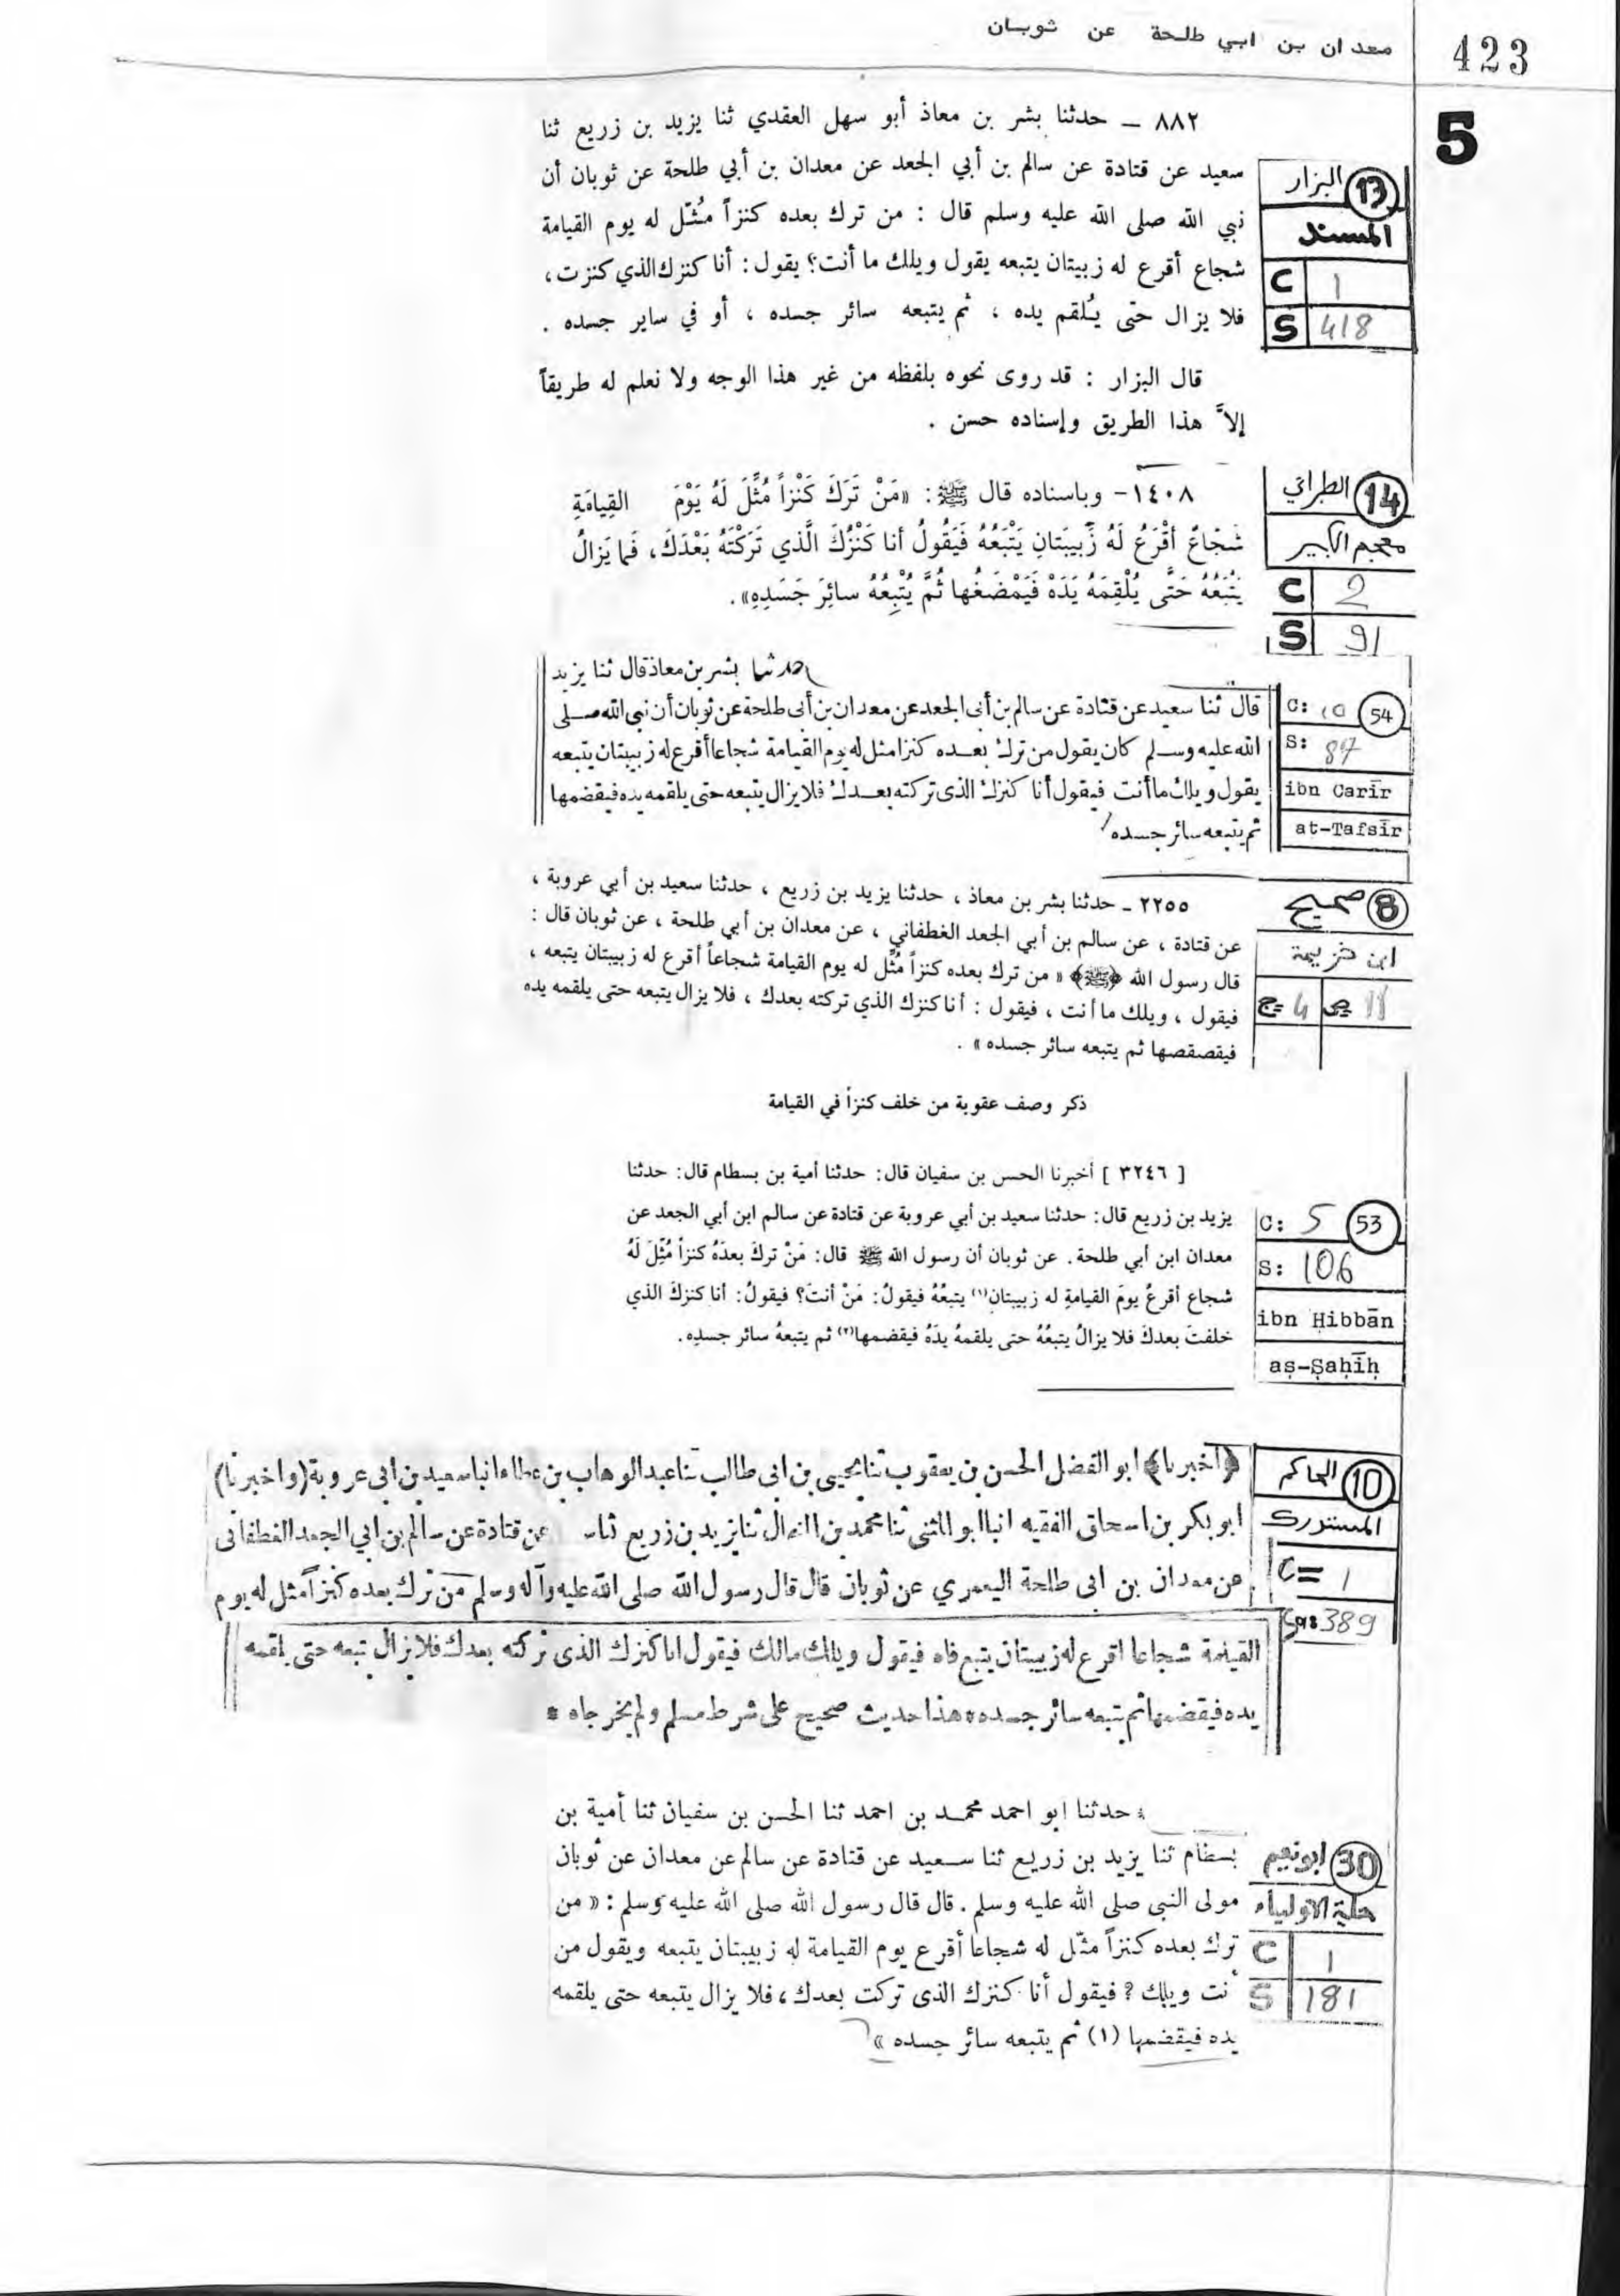 معدان بن ابي طلحة عن ثوبان
423
5
٨٨٢ – حدثنا بشر بن معاذ أبو سهل العقدي ثنا يزيد بن زريع ثنا
سعيد عن قتادة عن سالم بن أبي الجعد عن معدان بن أبي طلحة عن ثوبان أن
نبي الله صلى الله عليه وسلم قال : من ترك بعده كنزاً مُثّل له يوم القيامة
شجاع أقرع له زبيبتان يتبعه يقول ويلك ما أنت؟ يقول : أنا كنزك الذي كنزت ،
فلا يزال حتى يُلقم يده ، ثم يتبعه سائر جسده ، أو في ساير جسده .
قال البزار : قد روى نحوه بلفظه من غير هذا الوجه ولا نعلم له طريقاً
إلاَّ هذا الطريق وإسناده حسن .
13 البزار
المسند
C 1
S 418
١٤٠٨ – وباسناده قال ﷺ : «مَنْ تَرَكَ كَنْزاً مُثِّلَ لَهُ يَوْمَ القِيامَةِ
شُجاعٌ أقْرَعُ لَهُ زَبِيبَتانِ يَتْبَعُهُ فَيَقُولُ أنا كَنْزُكَ الَّذي تَرَكْتَهُ بَعْدَكَ، فَما يَزالُ
يَتْبَعُهُ حَتَّى يُلْقِمَهُ يَدَهُ فَيَمْضَغُها ثُمَّ يُتْبِعُهُ سائِرَ جَسَدِهِ» .
14 الطبراني
معجم الكبير
C 2
S 91
حدثنا بشر بن معاذ قال ثنا يزيد
قال ثنا سعيد عن قتادة عن سالم بن أبى الجعد عن معدان بن أبى طلحة عن ثوبان أن نبى الله صلى
الله عليه وسلم كان يقول من ترك بعده كنزا مثل له يوم القيامة شجاعا أقرع له زبيبتان يتبعه
يقول ويلك ما أنت فيقول أنا كنزك الذى تركته بعدك فلا يزال يتبعه حتى يلقمه يده فيقضمها
ثم يتبعه سائر جسده
C: 10 54
S: 87
ibn Carīr
at-Tafsīr
٢٢٥٥ ـ حدثنا بشر بن معاذ ، حدثنا يزيد بن زريع ، حدثنا سعيد بن أبي عروبة ،
عن قتادة ، عن سالم بن أبي الجعد الغطفاني ، عن معدان بن أبي طلحة ، عن ثوبان قال :
قال رسول الله ﴿ﷺ﴾ « من ترك بعده كنزاً مُثِّل له يوم القيامة شجاعاً أقرع له زبيبتان يتبعه ،
فيقول ، ويلك ما أنت ، فيقول : أنا كنزك الذي تركته بعدك ، فلا يزال يتبعه حتى يلقمه يده
فيقصقصها ثم يتبعه سائر جسده » .
8 صحيح
ابن خزيمة
ج= 4 ص= 11
ذكر وصف عقوبة من خلف كنزاً في القيامة
[ ٣٢٤٦ ] أخبرنا الحسن بن سفيان قال: حدثنا أمية بن بسطام قال: حدثنا
يزيد بن زريع قال: حدثنا سعيد بن أبي عروبة عن قتادة عن سالم ابن أبي الجعد عن
معدان ابن أبي طلحة. عن ثوبان أن رسول الله ﷺ قال: مَنْ تركَ بعدَهُ كنزاً مُثِّلَ لَهُ
شجاع أقرعُ يومَ القيامةِ له زبيبتانِ(١) يتبعُهُ فيقولُ: مَنْ أنتَ؟ فيقولُ: أنا كنزكَ الذي
خلفتَ بعدكَ فلا يزالُ يتبعُهُ حتى يلقمهُ يدَهُ فيقضمها(٢) ثم يتبعهُ سائر جسدِه.
C: 5 53
S: 106
ibn Ḥibbān
aṣ-Ṣaḥīḥ
﴿أخبرنا﴾ ابو الفضل الحسن بن يعقوب ثنا يحيى بن ابى طالب ثنا عبد الوهاب بن عطاء انبا سعيد بن ابى عروبة (واخبرنا)
ابو بكر بن اسحاق الفقيه انبا ابو المثنى ثنا محمد بن المنهال ثنا يزيد بن زريع ثنا عن قتادة عن سالم بن ابي الجعد الغطفانى
عن معدان بن ابى طلحة اليعمري عن ثوبان قال قال رسول الله صلى الله عليه وآله وسلم من ترك بعده كنزاً مثل له يوم
القيمة شجاعا اقرع له زبيبتان يتبع فاه فيقول ويلك مالك فيقول انا كنزك الذى تركته بعدك فلا يزال يتبعه حتى يلقمه
يده فيقضمها ثم يتبعه سائر جسده * هذا حديث صحيح على شرط مسلم ولم يخرجاه *
10 الحاكم
المستدرك
C= 1
389
* حدثنا ابو احمد محمد بن احمد ثنا الحسن بن سفيان ثنا أمية بن
بسطام ثنا يزيد بن زريع ثنا سعيد عن قتادة عن سالم عن معدان عن ثوبان
مولى النبي صلى الله عليه وسلم . قال قال رسول الله صلى الله عليه وسلم : « من
ترك بعده كنزاً مثّل له شجاعا أقرع يوم القيامة له زبيبتان يتبعه ويقول من
أنت ويلك ؟ فيقول أنا كنزك الذى تركت بعدك ، فلا يزال يتبعه حتى يلقمه
يده فيقضمها (١) ثم يتبعه سائر جسده »
30 ابونعيم
حلية الاولياء
C 1
S 181